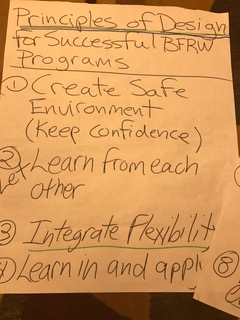 Principles of Design
for Successful BFRW
Programs
① Create Safe
Environment
(Keep confidence)
② Learn from each
other
③ Integrate Flexibilit
④ Learn in and appl
⑧